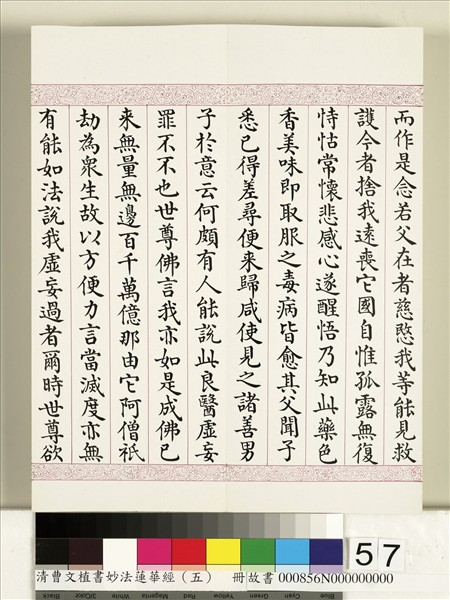 而作是念若父在者慈愍我等能見救
護今者捨我遠喪它國自惟孤露無復
恃怙常懷悲感心遂醒悟乃知此藥色
香美味即取服之毒病皆愈其父聞子
悉已得差尋便來歸咸使見之諸善男
子於意云何頗有人能說此良醫虛妄
罪不不也世尊佛言我亦如是成佛已
來無量無邊百千萬億那由它阿僧祇
劫為衆生故以方便力言當滅度亦無
有能如法說我虛妄過者爾時世尊欲
57
清曹文植書妙法蓮華經（五） 冊故書 000856N000000000
Black 3/Color White Magenta Red Yellow Green Cyan Blue